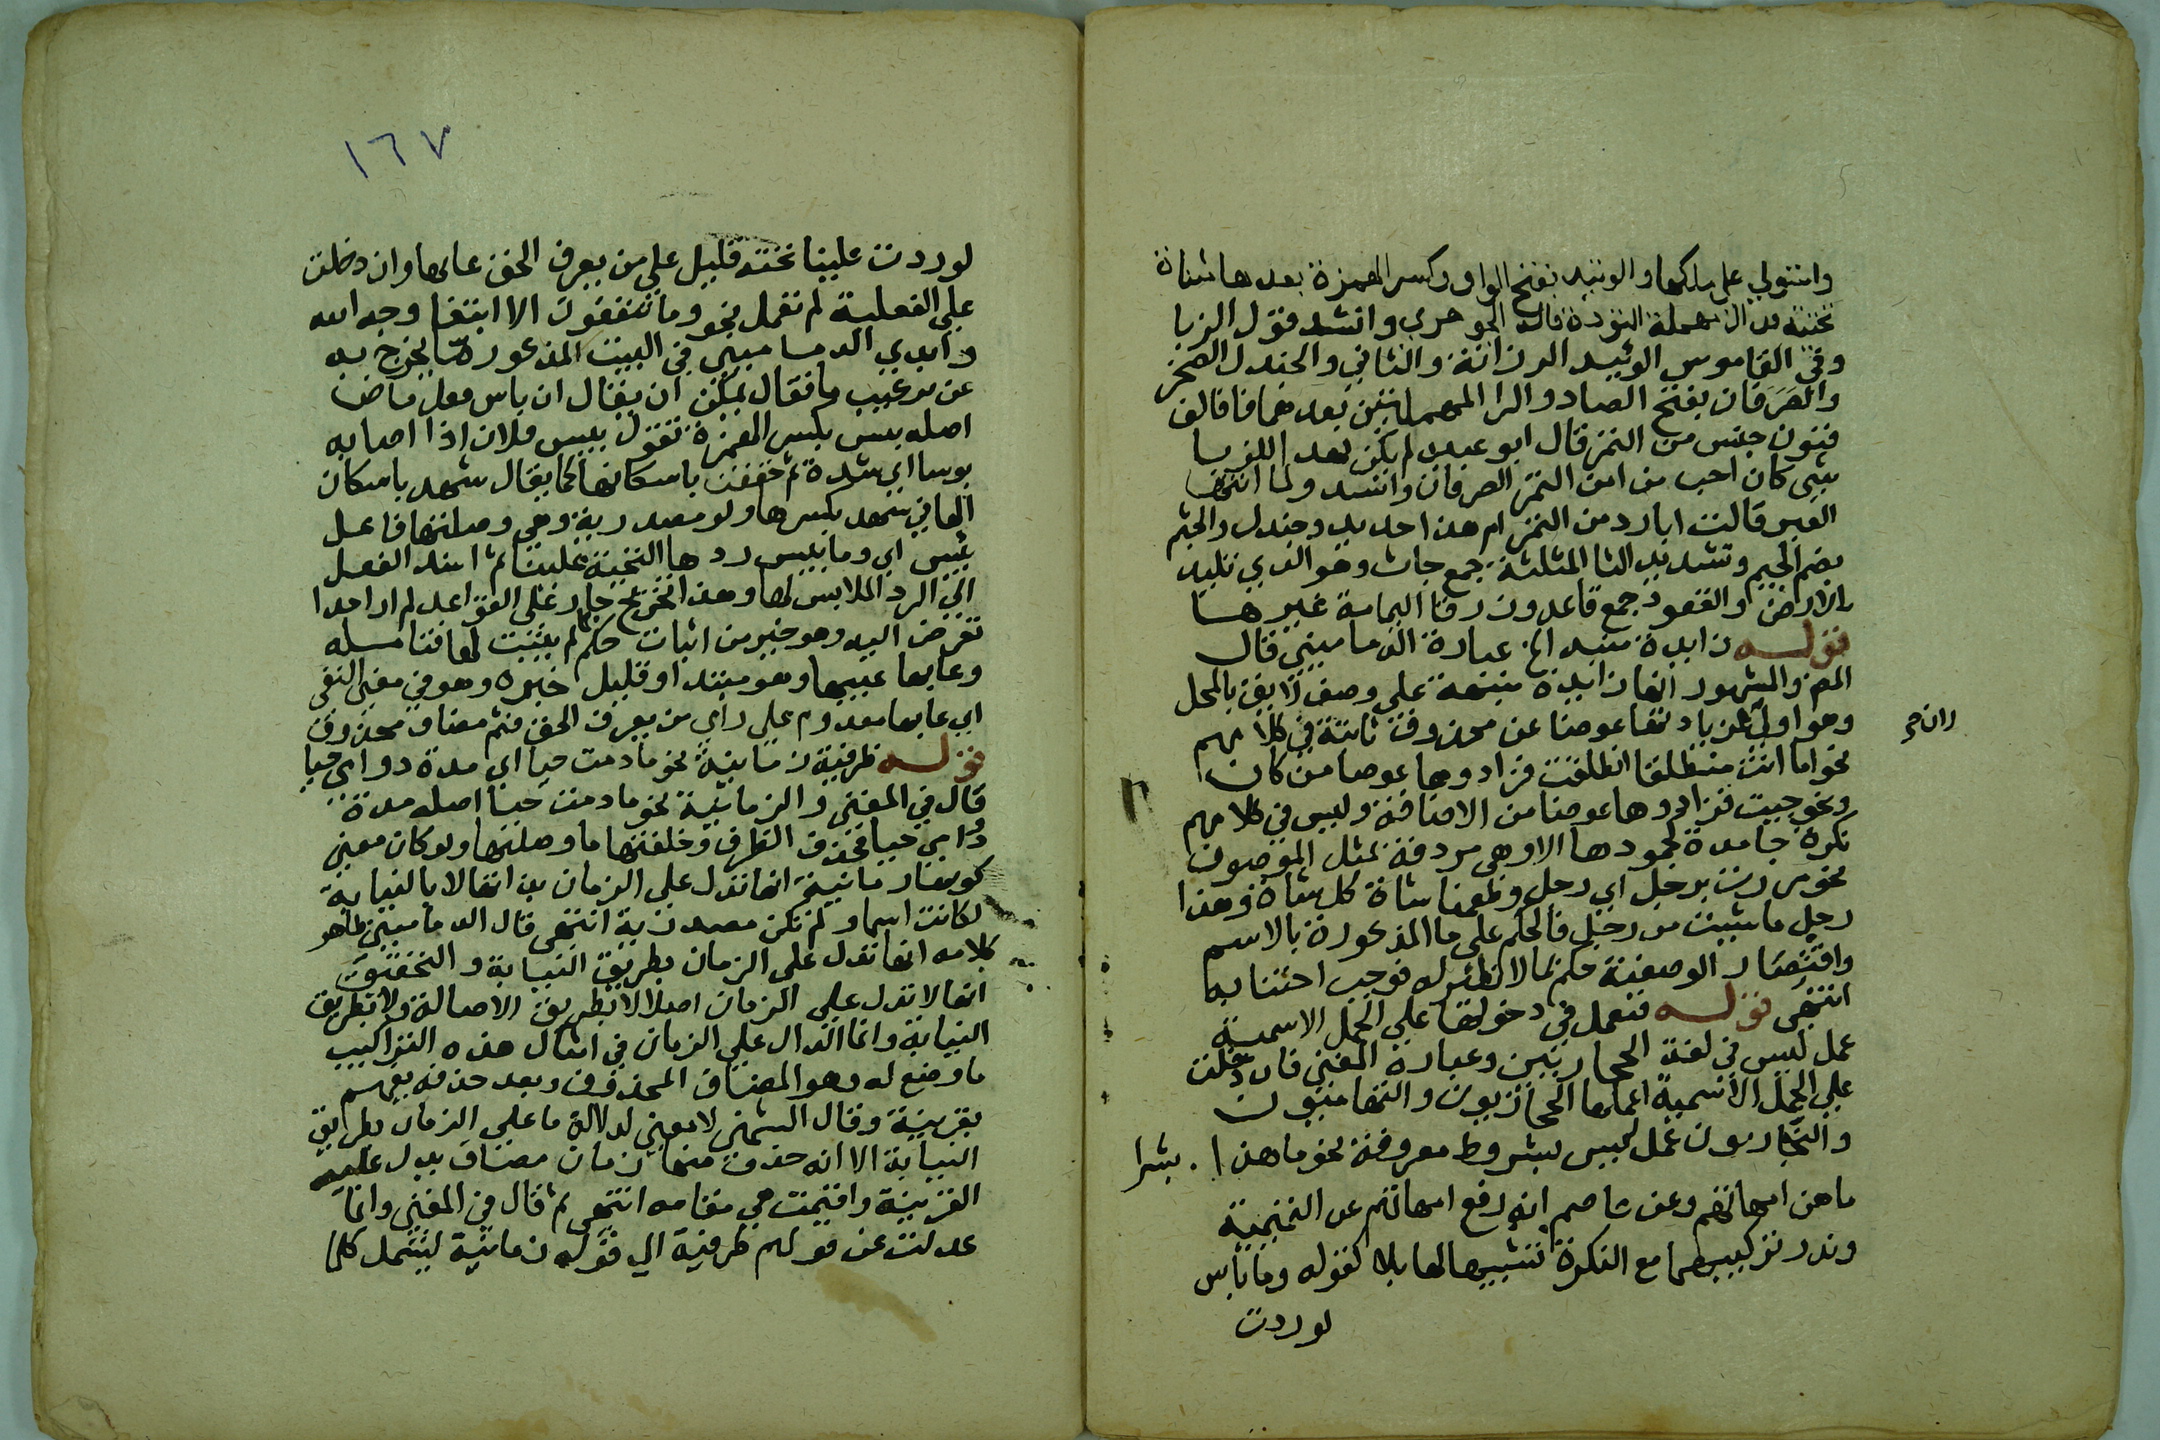 واستولي على ملكها والوئيد بفتح الواو وكسر الهمزة بعدها مثناة
تحتية فدال مهملة التودة قاله الجوهري وانشد قول الزبا
وفي القاموس الوئيد الرزانة والثاني والجندل الصخر
والصَرَفان بفتح الصاد والرا المهملتين بعدهما فا فالف
فنون جنس من التمر قال ابو عبيد لم يكن يهدى اليها
شي كان احب من امن التمر الصرفان وانشد ولما اتتها
العير قالت ابارد من التمر ام هذا حديد وجندل والجثم
بضم الجيم وتشديد الثا المثلثة جمع جاث وهو الذي تلبد
بالارض والقعود جمع قاعد
قوله زايدة منبه الخ عبارة الدماميني قال
المص والمشهور انها زايدة منبهة على وصف لايق بالمحل
وهو اولى لان زيادتها عوضا عن محذوف ثابتة في كلامهم
نحو اما انت منطلقا انطلقت فزادوها عوضا من كان
ونحو حيث فزادوها عوضا من الاضافة وليس في كلامهم
نكرة جامدة لجمودها الا وهي مردفة بمثل الموصوف
نحو مررت برجل اي رجل وطعمنا شاة كل شاة وهذا
رجل ما شيت من رجل فالحكم على ما المذكورة بالاسم
واقتضاء الوصفية حكم بما لا نظير له فوجب اجتنابه
انتهى قوله فتعمل في دخولها على الجمل الاسمية
عمل ليس في لغة الحجازيين وعبارة المغني فان دخلت
على الجمل الاسمية اعملها الحجازيون والتهاميون
والنجديون عمل ليس بشروط معروفة نحو ما هذا بشرا
ما هن امهاتهم وعن عاصم انه رفع امهاتهم على التميمية
وندر تركيبها مع النكرة تشبيها لها بلا كقوله وما باس
لوردت
١٦٧
لو ردت علينا تحية قليل على من يعرف الحق عابها وان دخلت
على الفعلية لم تعمل نحو وما تنفقون الا ابتغا وجه الله
وابدي الدماميني في البيت المذكور ما يخرج به
عن فقال يمكن ان يقال ان باس فعل ماض
اصله بيس بكسر الهمزة تقول بيس فلان اذا اصابه
بوسا اي شدة ثم خففت باسكانها كما يقال شهد باسكان
الها في شهد بكسرها ولو مصدرية وهي وصلتها فاعل
بيس اي وما بيس ردها التحية علينا ثم اسند الفعل
الي الرد الملابس لها وهذا تخريج جار على القواعد لم ار احدا
تعرض اليه وهو خير من اثبات حكم لم يثبت لها فتامله
وعابها عيبها وهو مبتدا وقليل خبره وهو في معنى النفي
اي عابها معدوم على راي من يعرف الحق فثم مضاف محذوف
قوله ظرفية زمانية نحو ما دمت حيا اي مدة دوامي حيا
قال في المغني والزمانية نحو ما دمت حيا اصله مدة
دوامي حيا فحذف الظرف وخلفتها ما وصلتها ولو كان معنى
كونها زمانية انها تدل على الزمان بذاتها لا بالنيابة
لكانت اسما ولم تكن مصدرية انتهى قال الدماميني ظاهر
كلامه انها تدل على الزمان بطريق النيابة والتحقيق
انها لا تدل على الزمان اصلا لا بطريق الاصالة ولا بطريق
النيابة وانما الدال على الزمان في امثال هذه التراكيب
ما وضع له وهو المضاف المحذوف وبعد حذفه يفهم
بقرينة وقال الشمني لا معنى لدلالة ما على الزمان بطريق
النيابة الا انه حذف منها زمان مضاف يدل عليه
القرينة واقيمت هي مقامه انتهى ثم قال في المغني وانما
عدلت عن قولهم ظرفية الي قولي زمانية ليشمل كلما